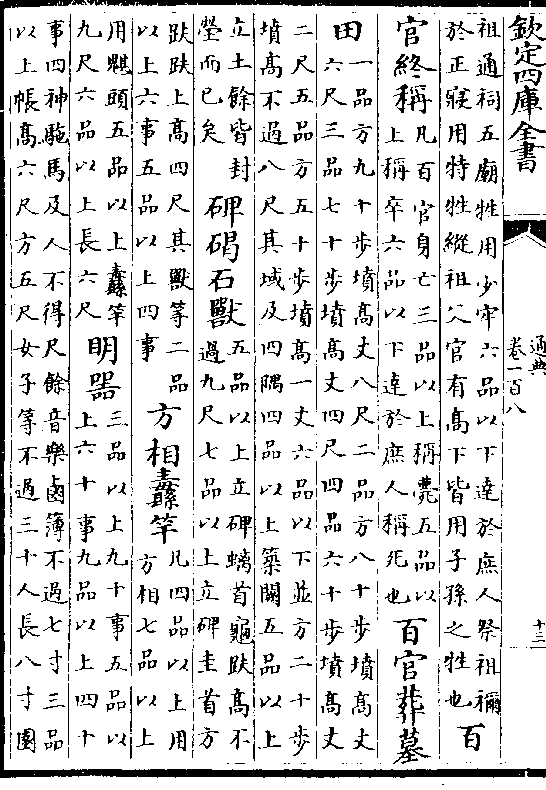 欽定四庫全書
通典
卷一百八
十三
祖通祠五廟牲用少牢六品以下達於庶人祭祖禰
於正寢用特牲縱祖父官有高下皆用子孫之牲也
百
官終稱
凡百官身亡三品以上稱薨五品以
上稱卒六品以下達於庶人稱死也
百官葬墓
田
一品方九十步墳高丈八尺二品方八十步墳高丈
六尺三品七十步墳高丈四尺四品六十步墳高丈
二尺五品方五十步墳高一丈六品以下並方二十步
墳高不過八尺其域及四隅四品以上築闕五品以上
立土餘皆封
塋而已矣
碑碣石獸
五品以上立碑螭首龜趺高不
過九尺七品以上立碑圭首方
趺趺上高四尺其獸等二品
以上六事五品以上四事
方相纛竿
凡四品以上用
方相七品以上
用魌頭五品以上纛竿
九尺六品以上長六尺
明器
三品以上九十事五品以
上六十事九品以上四十
事四神駝馬及人不得尺餘音樂鹵簿不過七寸三品
以上帳高六尺方五尺女子等不過三十人長八寸園